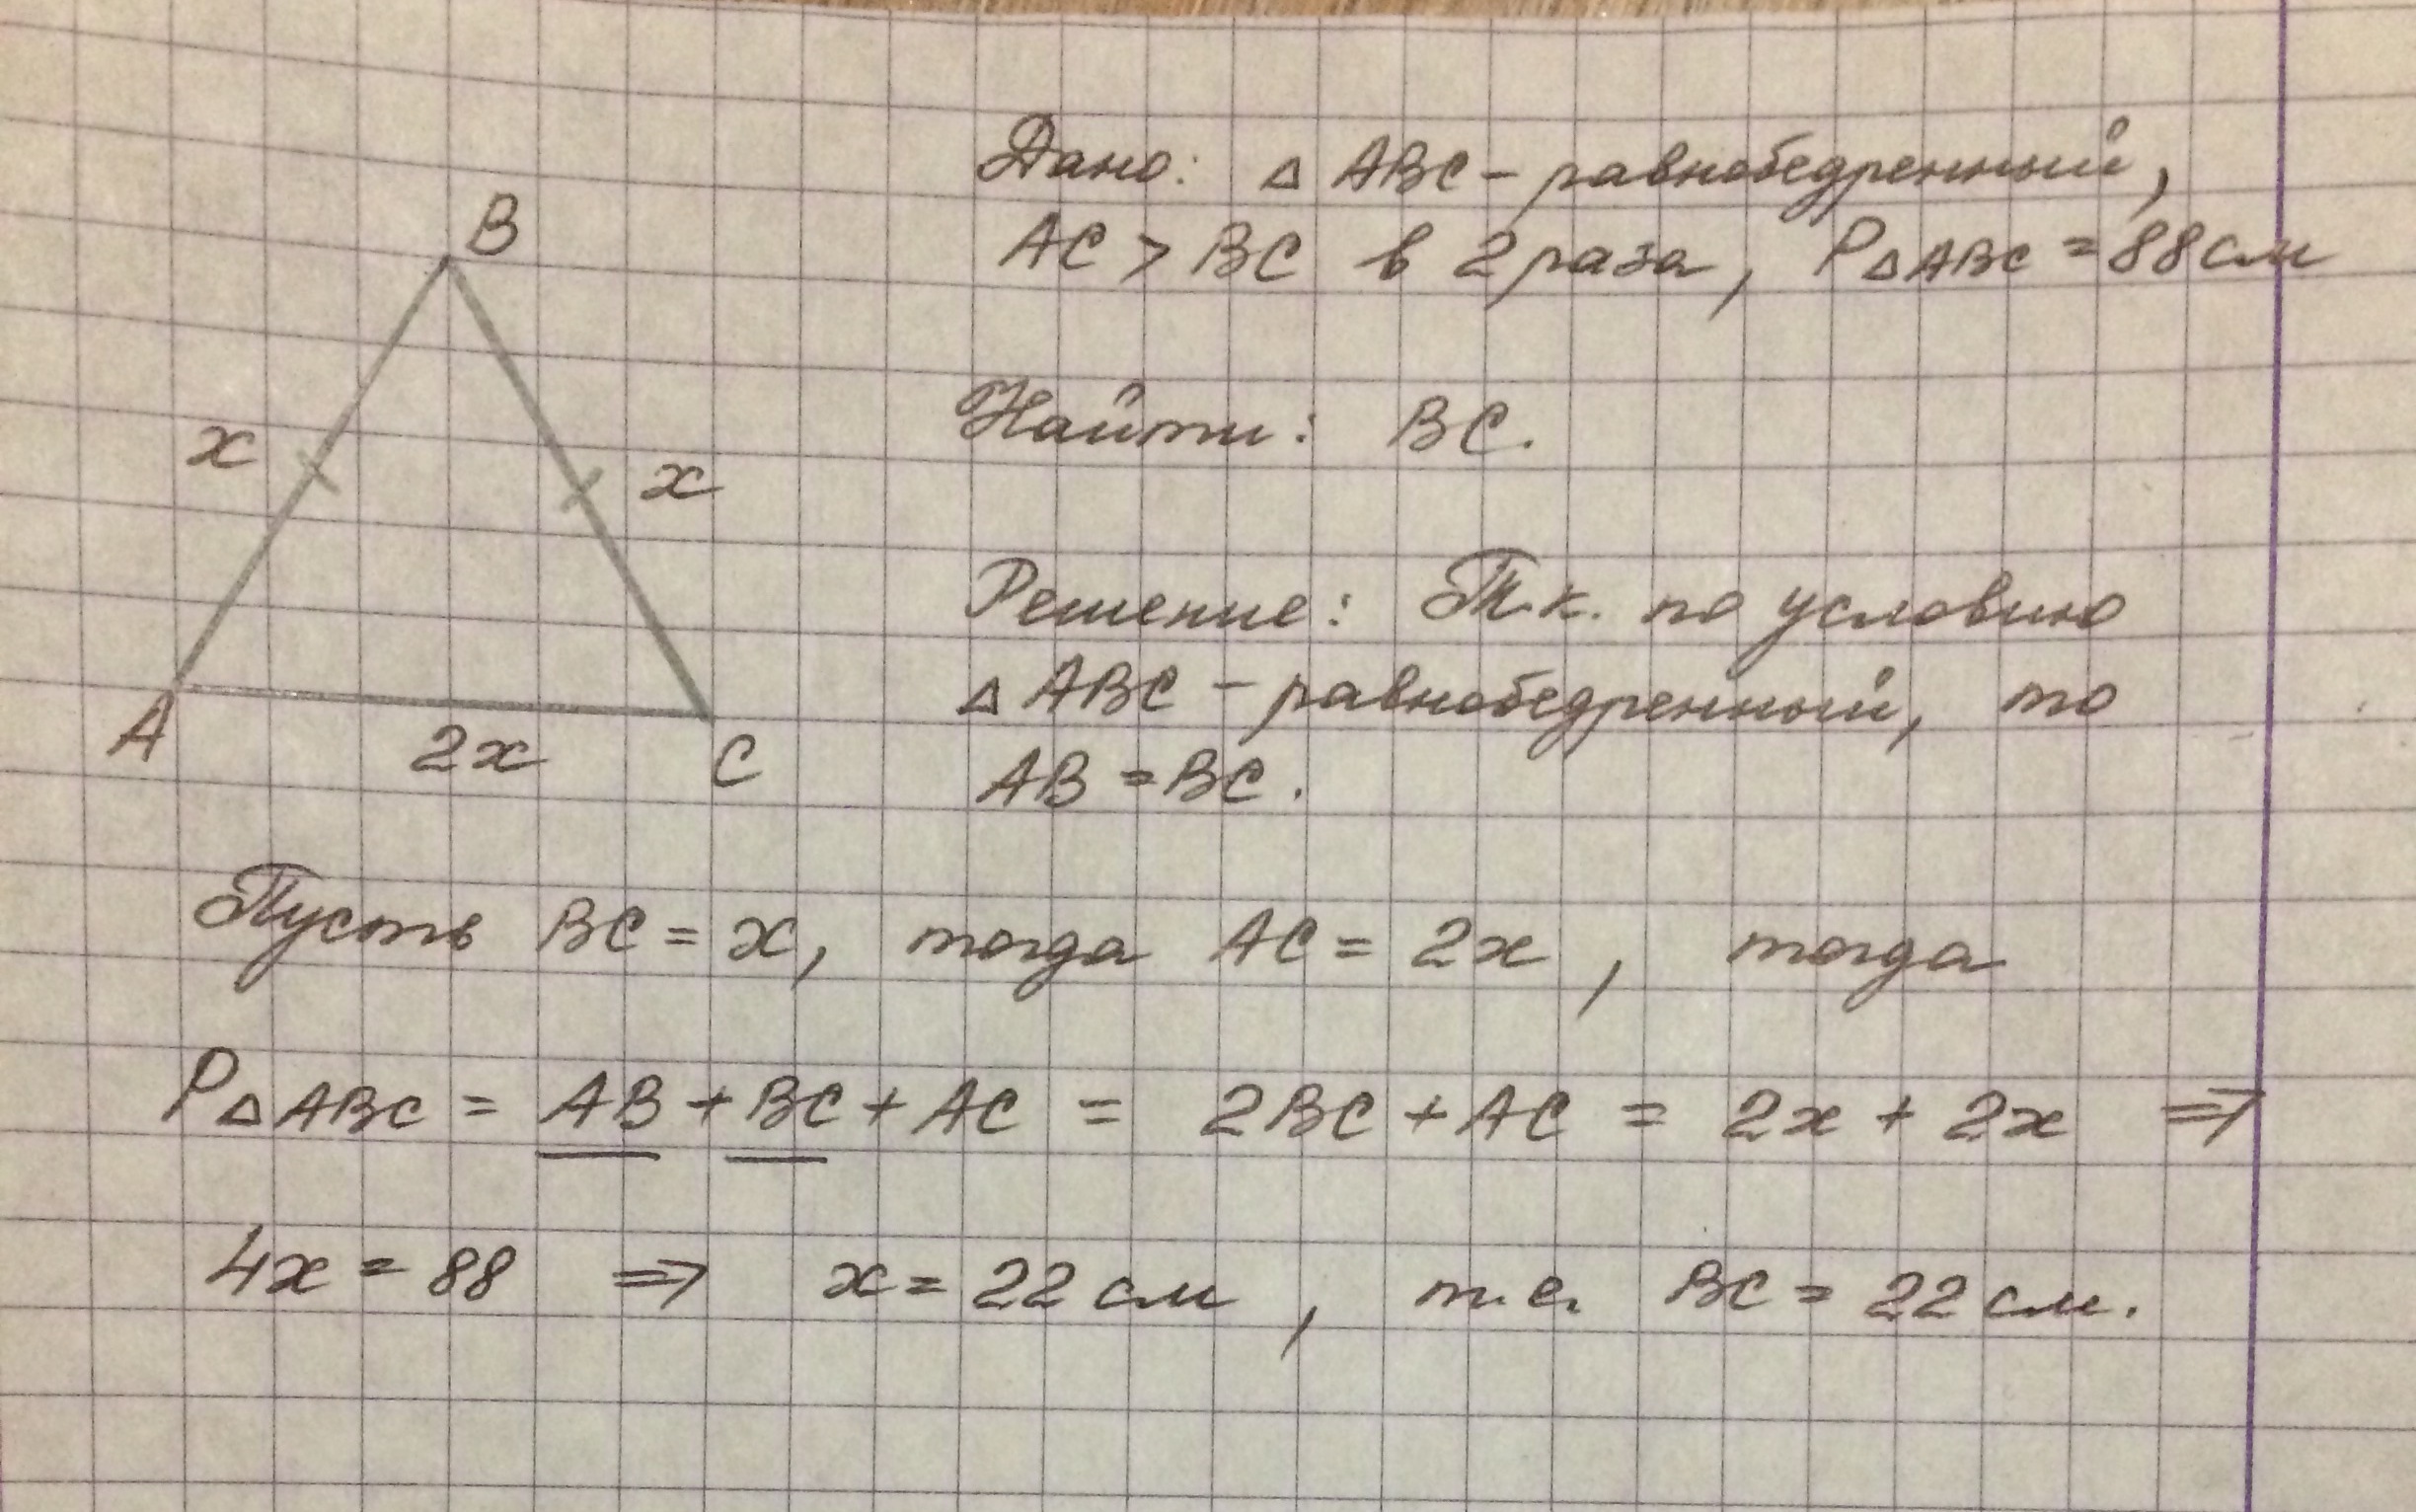 Дано: △ ABC - равнобедренный,
AC > BC в 2 раза, P△ABC = 88 см
Найти: BC.
Решение: Т.к. по условию
△ ABC - равнобедренный, то
AB = BC.
B
x
x
A
2x
C
Пусть BC = x, тогда AC = 2x, тогда
P△ABC = AB + BC + AC = 2BC + AC = 2x + 2x ⇒
4x = 88 ⇒ x = 22 см, т.е. BC = 22 см.